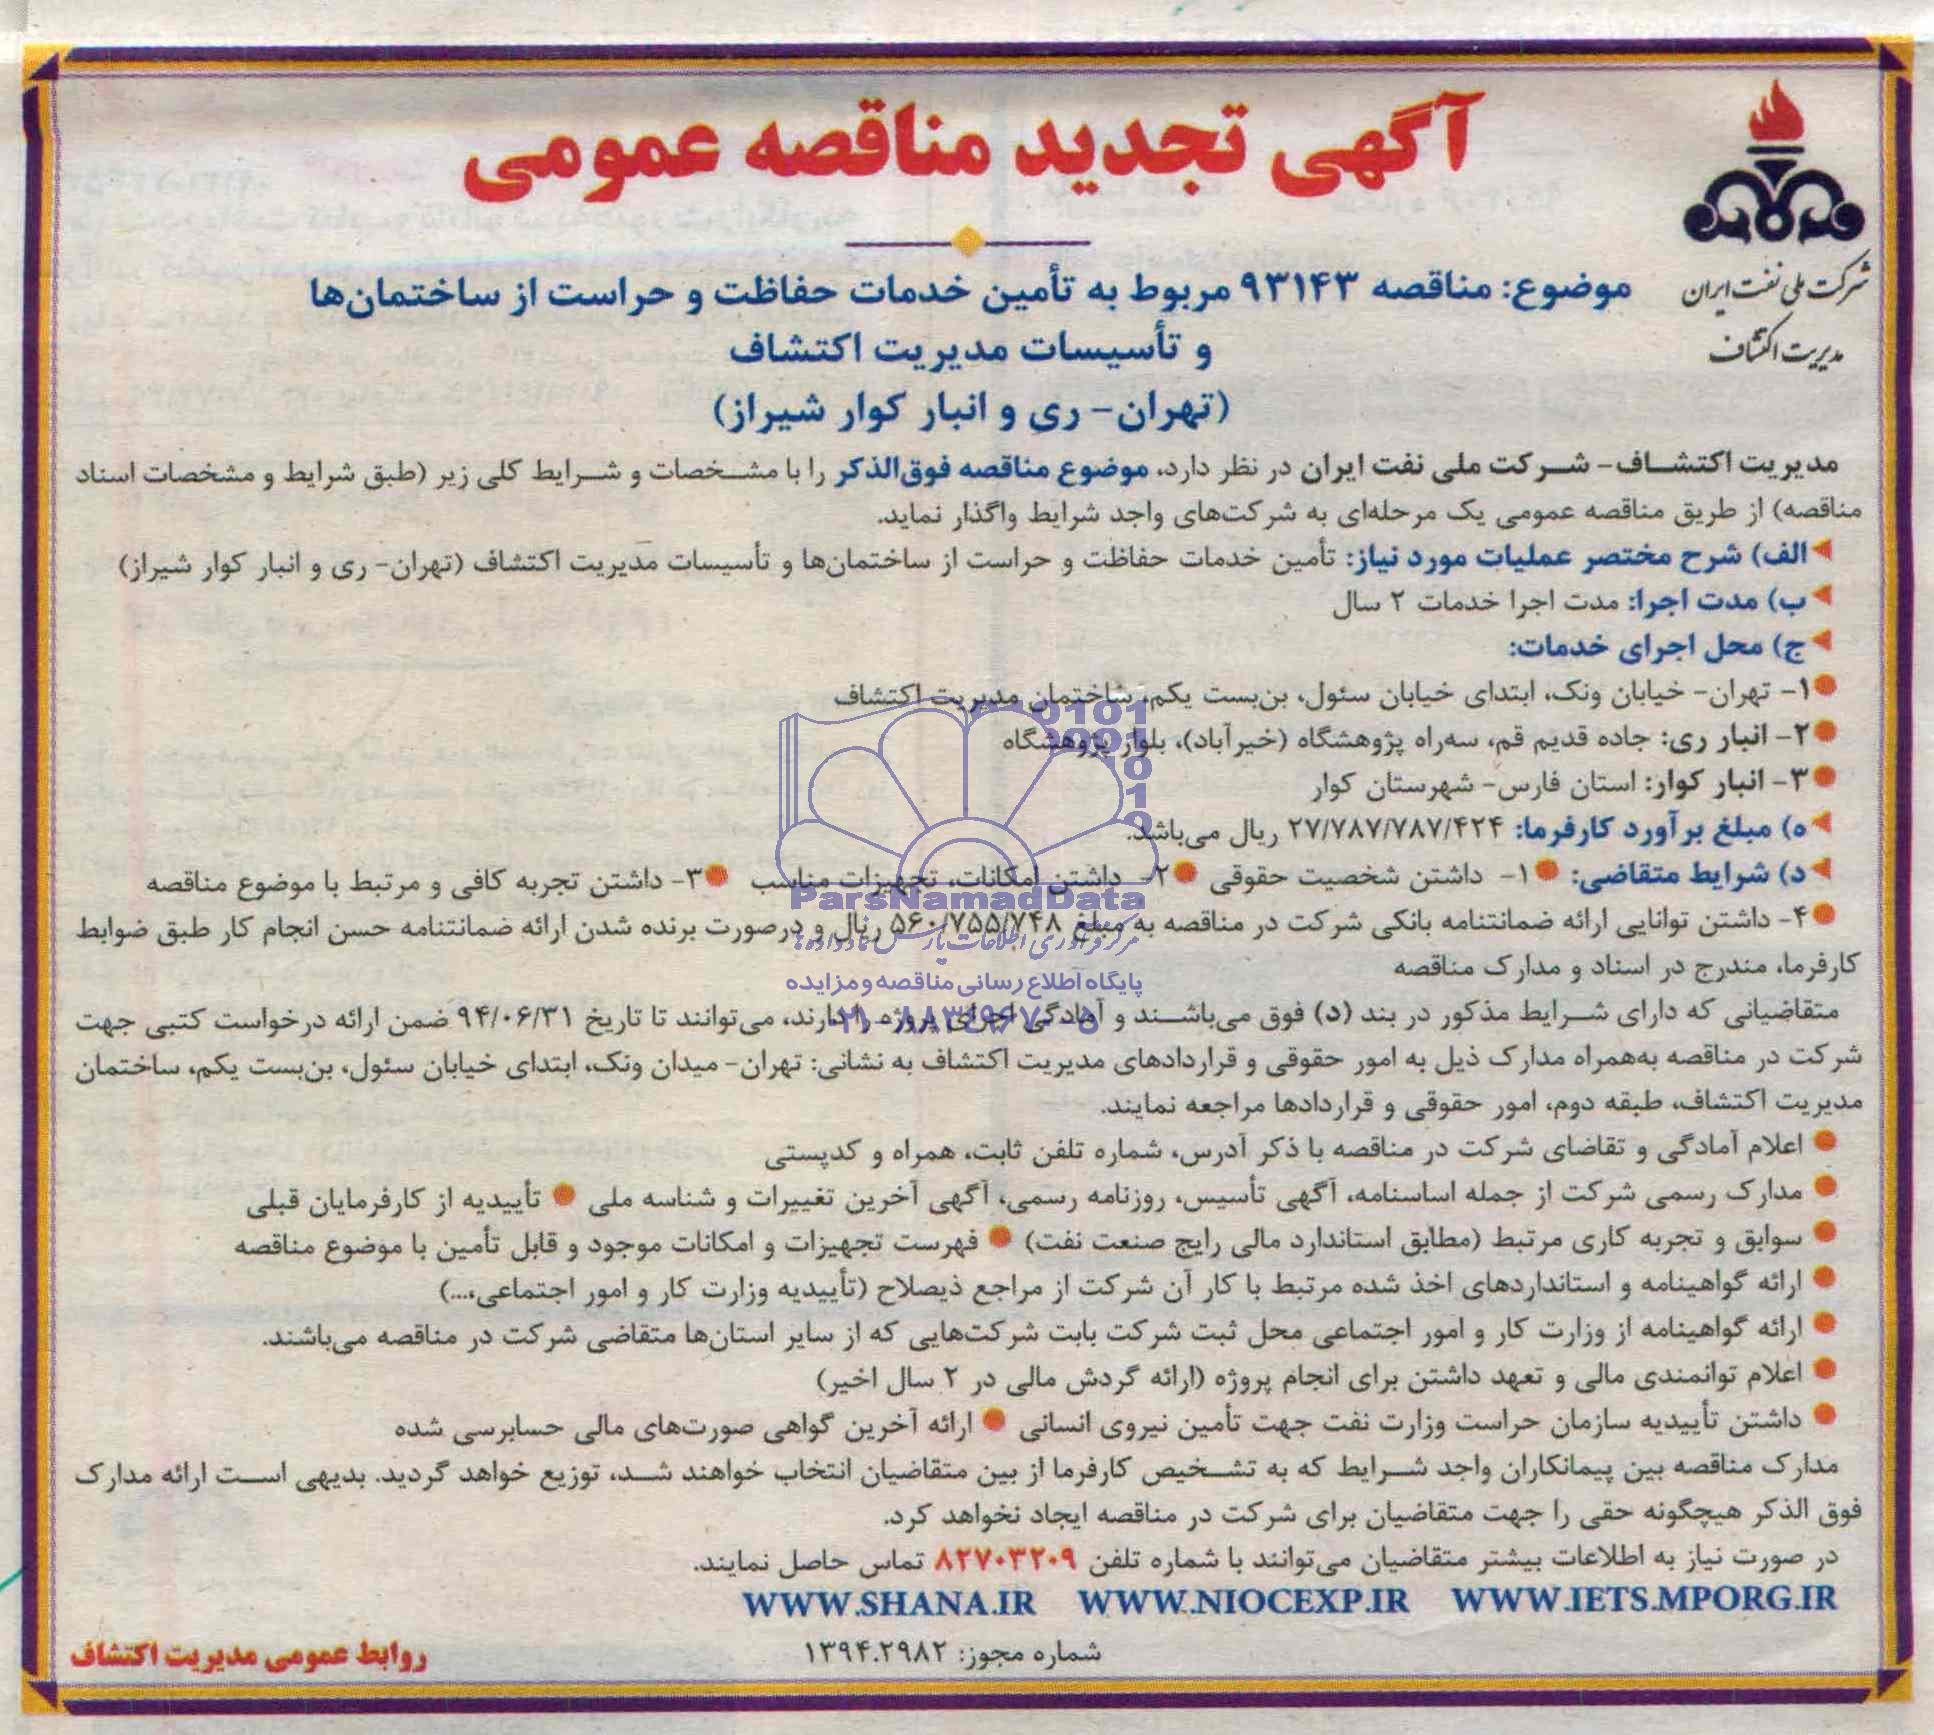 آگهی تجدید مناقصه عمومی
شرکت ملی نفت ایران
مدیریت اکتشاف
موضوع: مناقصه ۹۳۱۴۳ مربوط به تأمین خدمات حفاظت و حراست از ساختمان‌ها
و تأسیسات مدیریت اکتشاف
(تهران- ری و انبار کوار شیراز)
مدیریت اکتشاف- شرکت ملی نفت ایران در نظر دارد، موضوع مناقصه فوق‌الذکر را با مشخصات و شرایط کلی زیر (طبق شرایط و مشخصات اسناد
مناقصه) از طریق مناقصه عمومی یک مرحله‌ای به شرکت‌های واجد شرایط واگذار نماید.
الف) شرح مختصر عملیات مورد نیاز: تأمین خدمات حفاظت و حراست از ساختمان‌ها و تأسیسات مدیریت اکتشاف (تهران- ری و انبار کوار شیراز)
ب) مدت اجرا: مدت اجرا خدمات ۲ سال
ج) محل اجرای خدمات:
۱- تهران- خیابان ونک، ابتدای خیابان سئول، بن‌بست یکم، ساختمان مدیریت اکتشاف
۲- انبار ری: جاده قدیم قم، سه‌راه پژوهشگاه (خیرآباد)، بلوار پژوهشگاه
۳- انبار کوار: استان فارس- شهرستان کوار
ه) مبلغ برآورد کارفرما: ۲۷/۷۸۷/۷۸۷/۴۲۴ ریال می‌باشد.
د) شرایط متقاضی: ● ۱- داشتن شخصیت حقوقی ● ۲- داشتن امکانات، تجهیزات مناسب ● ۳- داشتن تجربه کافی و مرتبط با موضوع مناقصه
● ۴- داشتن توانایی ارائه ضمانتنامه بانکی شرکت در مناقصه به مبلغ ۵۶۰/۷۵۵/۷۴۸ ریال و درصورت برنده شدن ارائه ضمانتنامه حسن انجام کار طبق ضوابط
کارفرما، مندرج در اسناد و مدارک مناقصه
متقاضیانی که دارای شرایط مذکور در بند (د) فوق می‌باشند و آمادگی اجرای پروژه را دارند، می‌توانند تا تاریخ ۹۴/۰۶/۳۱ ضمن ارائه درخواست کتبی جهت
شرکت در مناقصه به‌همراه مدارک ذیل به امور حقوقی و قراردادهای مدیریت اکتشاف به نشانی: تهران- میدان ونک، ابتدای خیابان سئول، بن‌بست یکم، ساختمان
مدیریت اکتشاف، طبقه دوم، امور حقوقی و قراردادها مراجعه نمایند.
● اعلام آمادگی و تقاضای شرکت در مناقصه با ذکر آدرس، شماره تلفن ثابت، همراه و کدپستی
● مدارک رسمی شرکت از جمله اساسنامه، آگهی تأسیس، روزنامه رسمی، آگهی آخرین تغییرات و شناسه ملی ● تأییدیه از کارفرمایان قبلی
● سوابق و تجربه کاری مرتبط (مطابق استاندارد مالی رایج صنعت نفت) ● فهرست تجهیزات و امکانات موجود و قابل تأمین با موضوع مناقصه
● ارائه گواهینامه و استانداردهای اخذ شده مرتبط با کار آن شرکت از مراجع ذیصلاح (تأییدیه وزارت کار و امور اجتماعی،...)
● ارائه گواهینامه از وزارت کار و امور اجتماعی محل ثبت شرکت بابت شرکت‌هایی که از سایر استان‌ها متقاضی شرکت در مناقصه می‌باشند.
● اعلام توانمندی مالی و تعهد داشتن برای انجام پروژه (ارائه گردش مالی در ۲ سال اخیر)
● داشتن تأییدیه سازمان حراست وزارت نفت جهت تأمین نیروی انسانی ● ارائه آخرین گواهی صورت‌های مالی حسابرسی شده
مدارک مناقصه بین پیمانکاران واجد شرایط که به تشخیص کارفرما از بین متقاضیان انتخاب خواهند شد، توزیع خواهد گردید. بدیهی است ارائه مدارک
فوق الذکر هیچگونه حقی را جهت متقاضیان برای شرکت در مناقصه ایجاد نخواهد کرد.
در صورت نیاز به اطلاعات بیشتر متقاضیان می‌توانند با شماره تلفن ۸۲۷۰۳۲۰۹ تماس حاصل نمایند.
WWW.SHANA.IR WWW.NIOCEXP.IR WWW.IETS.MPORG.IR
شماره مجوز: ۱۳۹۴.۲۹۸۲
روابط عمومی مدیریت اکتشاف
ParsNamadData
مرکز فرآوری اطلاعات پارس نماد داده‌ها
پایگاه اطلاع رسانی مناقصه و مزایده
۰۲۱-۸۸۳۴۹۶۷۰-۵